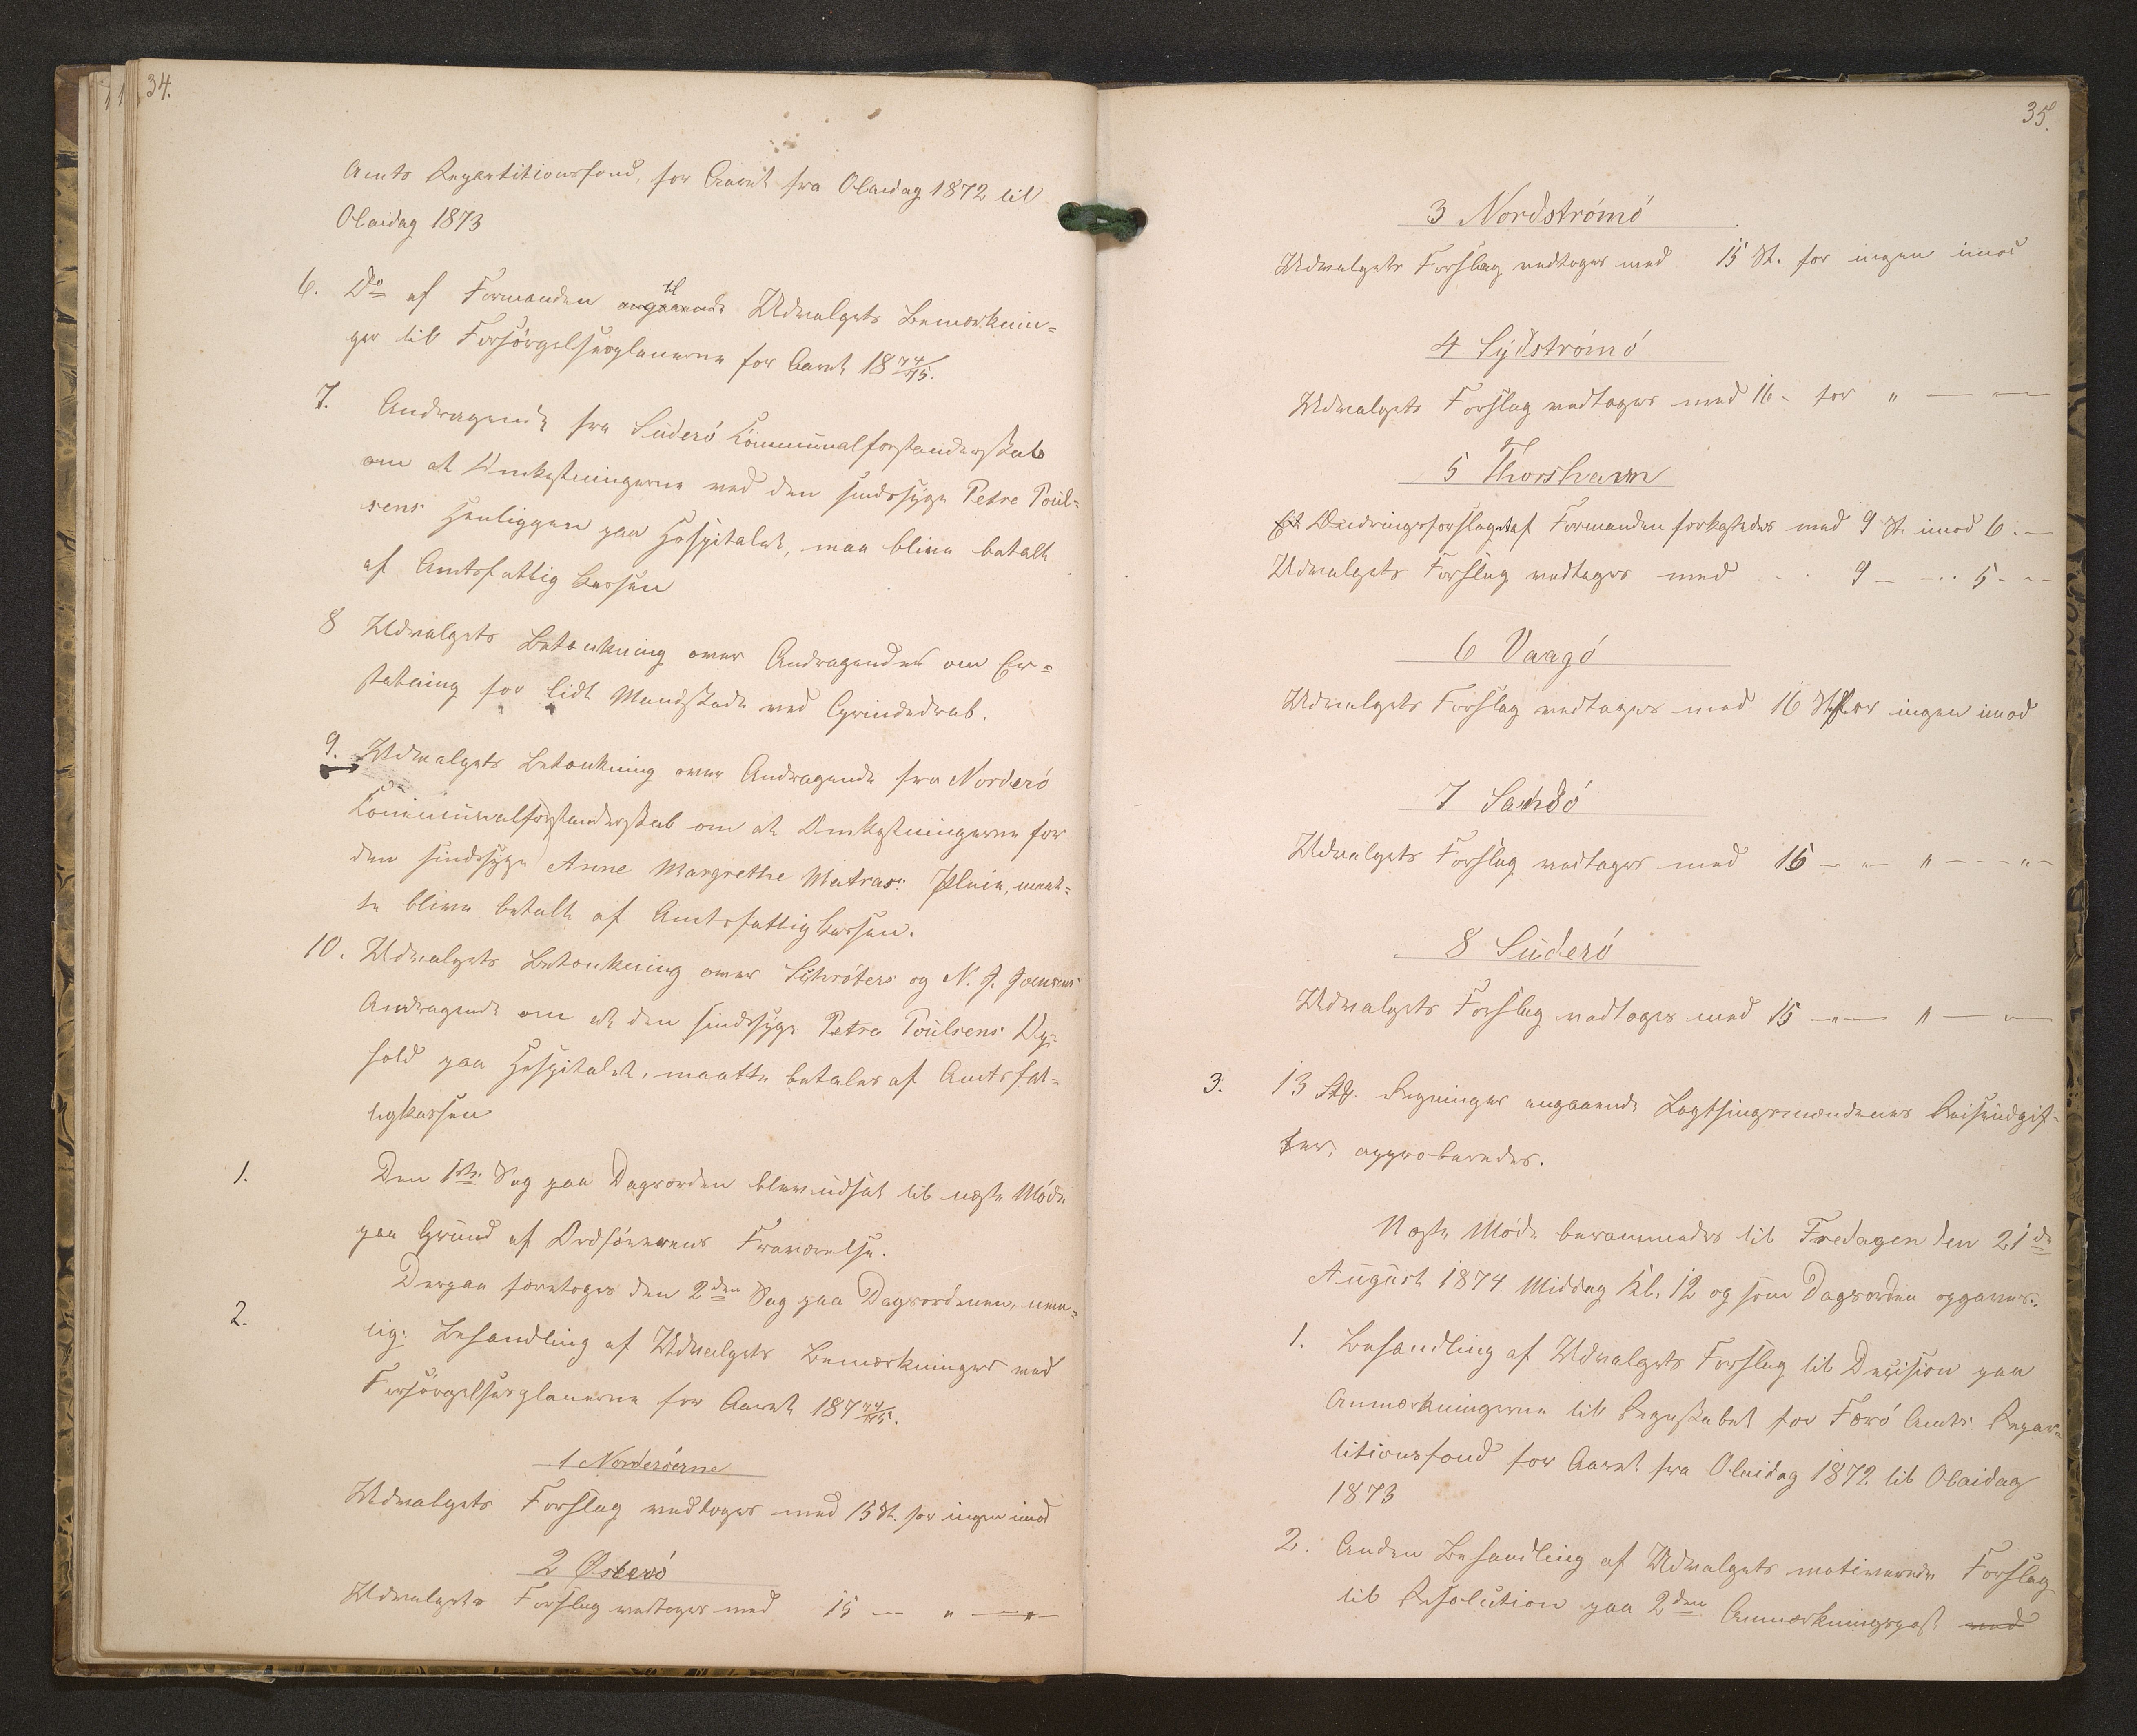 34.
Amts Repartitionsfond, for Aaret fra Olaidag 1872 til
Olaidag 1873
6. Do af Formanden angaaende til Udvalgets Bemærknin-
ger til Forsörgelsesplanerne for Aaret 1874/75.
7. Andragende fra Suderö Communalforstanderskab
om at Omkostningerne ved den sindssyge Petre Poul-
sens Henliggen paa Hospitalet, maa blive betalt
af Amtsfattigkassen
8 Udvalgets Betænkning over Andragender om Er-
statning for lidt Mandskade ved Grindedrab.
9. Udvalgets Betænkning over Andragende fra Norderö
Communalforstanderskab om at Omkostningerne for
den sindssyge Anne Margrethe Matras Pleie, maat-
te blive betalt af Amtsfattigkassen.
10. Udvalgets Betænkning over Schröters og N. J. Joensens
Andragende om at den sindssyge Petra Poulsens Op-
hold paa Hospitalet, maatte betales af Amtsfat-
tigkassen
1. Den 1ste Sag paa Dagsorden blev udsat til næste Möde
paa Grund af Ordförerens Fraværelse.
2. Derpaa foretoges den 2den Sag paa Dagsordenen, nem-
lig: Behandling af Udvalgets Bemærkninger ved
Forsörgelsesplanerne for Aaret 1874/75.
1 Norderöerne
Udvalgets Forslag vedtoges med 15 St. for ingen imod
2 Österö
Udvalgets Forslag vedtoges med 15 — " — " —
35.
3 Nordströmö
Udvalgets Forslag vedtoges med 15 St. for ingen imod
4 Sydströmö
Udvalgets Forslag vedtoges med 16 - for " — " —
5 Thorshavn
Et Ændringsforslag af Formanden forkastedes med 9 St. imod 6. —
Udvalgets Forslag vedtoges med 9 — - . . 5 - - —
6 Vaagö
Udvalgets Forslag vedtoges med 16 St. for ingen imod
7 Sandö
Udvalgets Forslag vedtoges med 16 — " — " — - - " —
8 Suderö
Udvalgets Forslag vedtoges med 15 — " — " — " —
3. 13 Stk. Regninger angaaende Lagthingsmændenes Reiseudgif-
ter, approberedes.
Næste Möde berammedes til Fredagen den 21de
August 1874 Middag Kl. 12 og som Dagsorden opgaves:
1. Behandling af Udvalgets Forslag til Decision paa
Anmærkningerne til Regnskabet for Færö Amts Repar-
titionsfond for Aaret fra Olaidag 1872 til Olaidag
1873
2. Anden Behandling af Udvalgets motiverede Forslag
til Resolution paa 2den Anmærkningspost ved